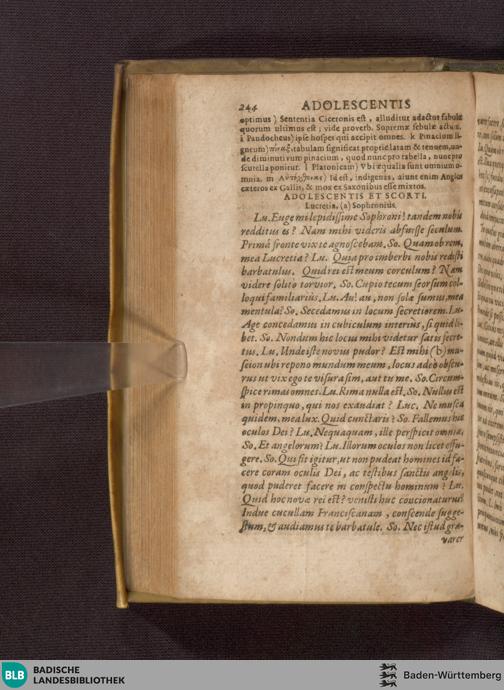 244 ADOLESCENTIS
optimus) Sententia Ciceronis est, alluditut adactus fabulæ
quorum ultimus est; vide proverb. Supremæ febulæ actus.
i Pandocheus) ipse hospes qui accipit omnes. k Pinacium li-
gneum) πίναξ, tabulam significat propriè latam & tenuem, un-
de diminutivum pinacium, quod nunc pro tabella, nunc pro
scutella ponitur. l Platonicam) Vbi æqualia sunt omnium o-
mnia. m Id est, indigenis, aiunt enim Anglos
cæteros ex Gallis, & mox ex Saxonibus esse mixtos.
ADOLESCENTIS ET SCORTI.
Lucretia, (a) Sophronius.
Lu. Euge mi lepidissime Sophroni! tandem nobis
redditus es? Nam mihi videris abfuisse seculum.
Primâ fronte vix te agnoscebam. So. Quamobrem,
mea Lucretia? Lu. Quia pro imberbi nobis redisti
barbatulus. Quid rei est meum corculum? Nam
videre solito torvior. So. Cupio tecum seorsum col-
loqui familiariùs. Lu. Au! au, non solæ sumus, mea
mentula? So. Secedamus in locum secretiorem. Lu.
Age concedamus in cubiculum interiùs, si quid li-
bet. So. Nondum hic locus mihi videtur satis secre-
tus. Lu. Unde iste novus pudor? Est mihi (b) mu-
scion ubi repono mundum meum, locus adeò obscu-
rus ut vix ego te visura sim, aut tu me. So. Circum-
spice rimas omnes. Lu. Rima nulla est. So. Nullus est
in propinquo, qui nos exaudiat? Luc. Ne musca
quidem, mea lux. Quid cunctaris? So. Fallemus hîc
oculos Dei? Lu. Nequaquam, ille perspicit omnia.
So. Et angelorum? Lu. Illorum oculos non licet effu-
gere. So. Qui fit igitur, ut non pudeat homines id fa-
cere coram oculis Dei, ac testibus sanctis angelis,
quod puderet facere in conspectu hominum? Lu.
Quid hoc novæ rei est? venisti huc concionaturus?
Indue cucullam Franciscanam, conscende sugge-
stum, & audiamus te barbatule. So. Nec istud gra-
varer
BLB BADISCHE
LANDESBIBLIOTHEK
Baden-Württemberg